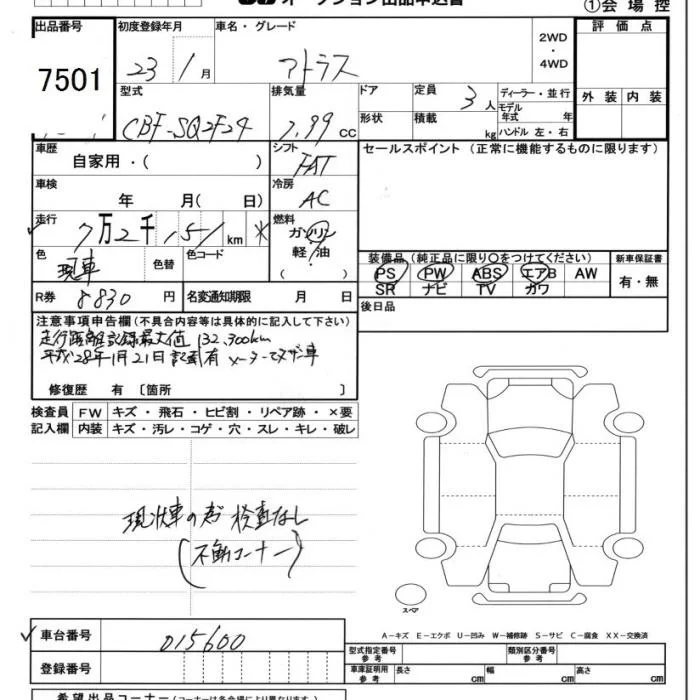 オークション出品申込書
①会場控
出品番号 初度登録年月 車名・グレード 評価点
7501
23 / 1月 アトラス 2WD・4WD
型式 排気量 ドア 定員 ディーラー・並行 外装 内装
3人 モデル年式 年
CBF-SQ2F24 1.99 CC 形状 積載 kg ハンドル 左・右
車歴 シフト セールスポイント (正常に機能するものに限ります)
自家用・( ) FAT
車検 冷房
年 月( 日) AC
走行 燃料
7万2千151km * ガソリン
色 色替 色コード 軽油 装備品 (純正品に限り○をつけてください) 新車保証書
現車 ( ) PS PW ABS エアB AW 有・無
SR ナビ TV カワ
R券 8830円 名変通知期限 月 日
後日品
注意事項申告欄 (不具合内容等は具体的に記入して下さい)
走行距離記録最大値 132,300km
平成28年1月21日記載有 メーター改ザン車
修復歴 有 〔箇所 〕
検査員 FW キズ・飛石・ヒビ割・リペア跡・×要
記入欄 内装 キズ・汚レ・コゲ・穴・スレ・キレ・破レ
現状車の為 検査なし
(不動コーナー)
スペア
A-キズ E-エクボ U-凹み W-補修跡 S-サビ C-腐食 XX-交換済
車台番号 015600
型式指定番号 参考 類別区分番号 参考
登録番号
車庫証明用 参考 長さ cm 幅 cm 高さ cm
希望出品コーナー